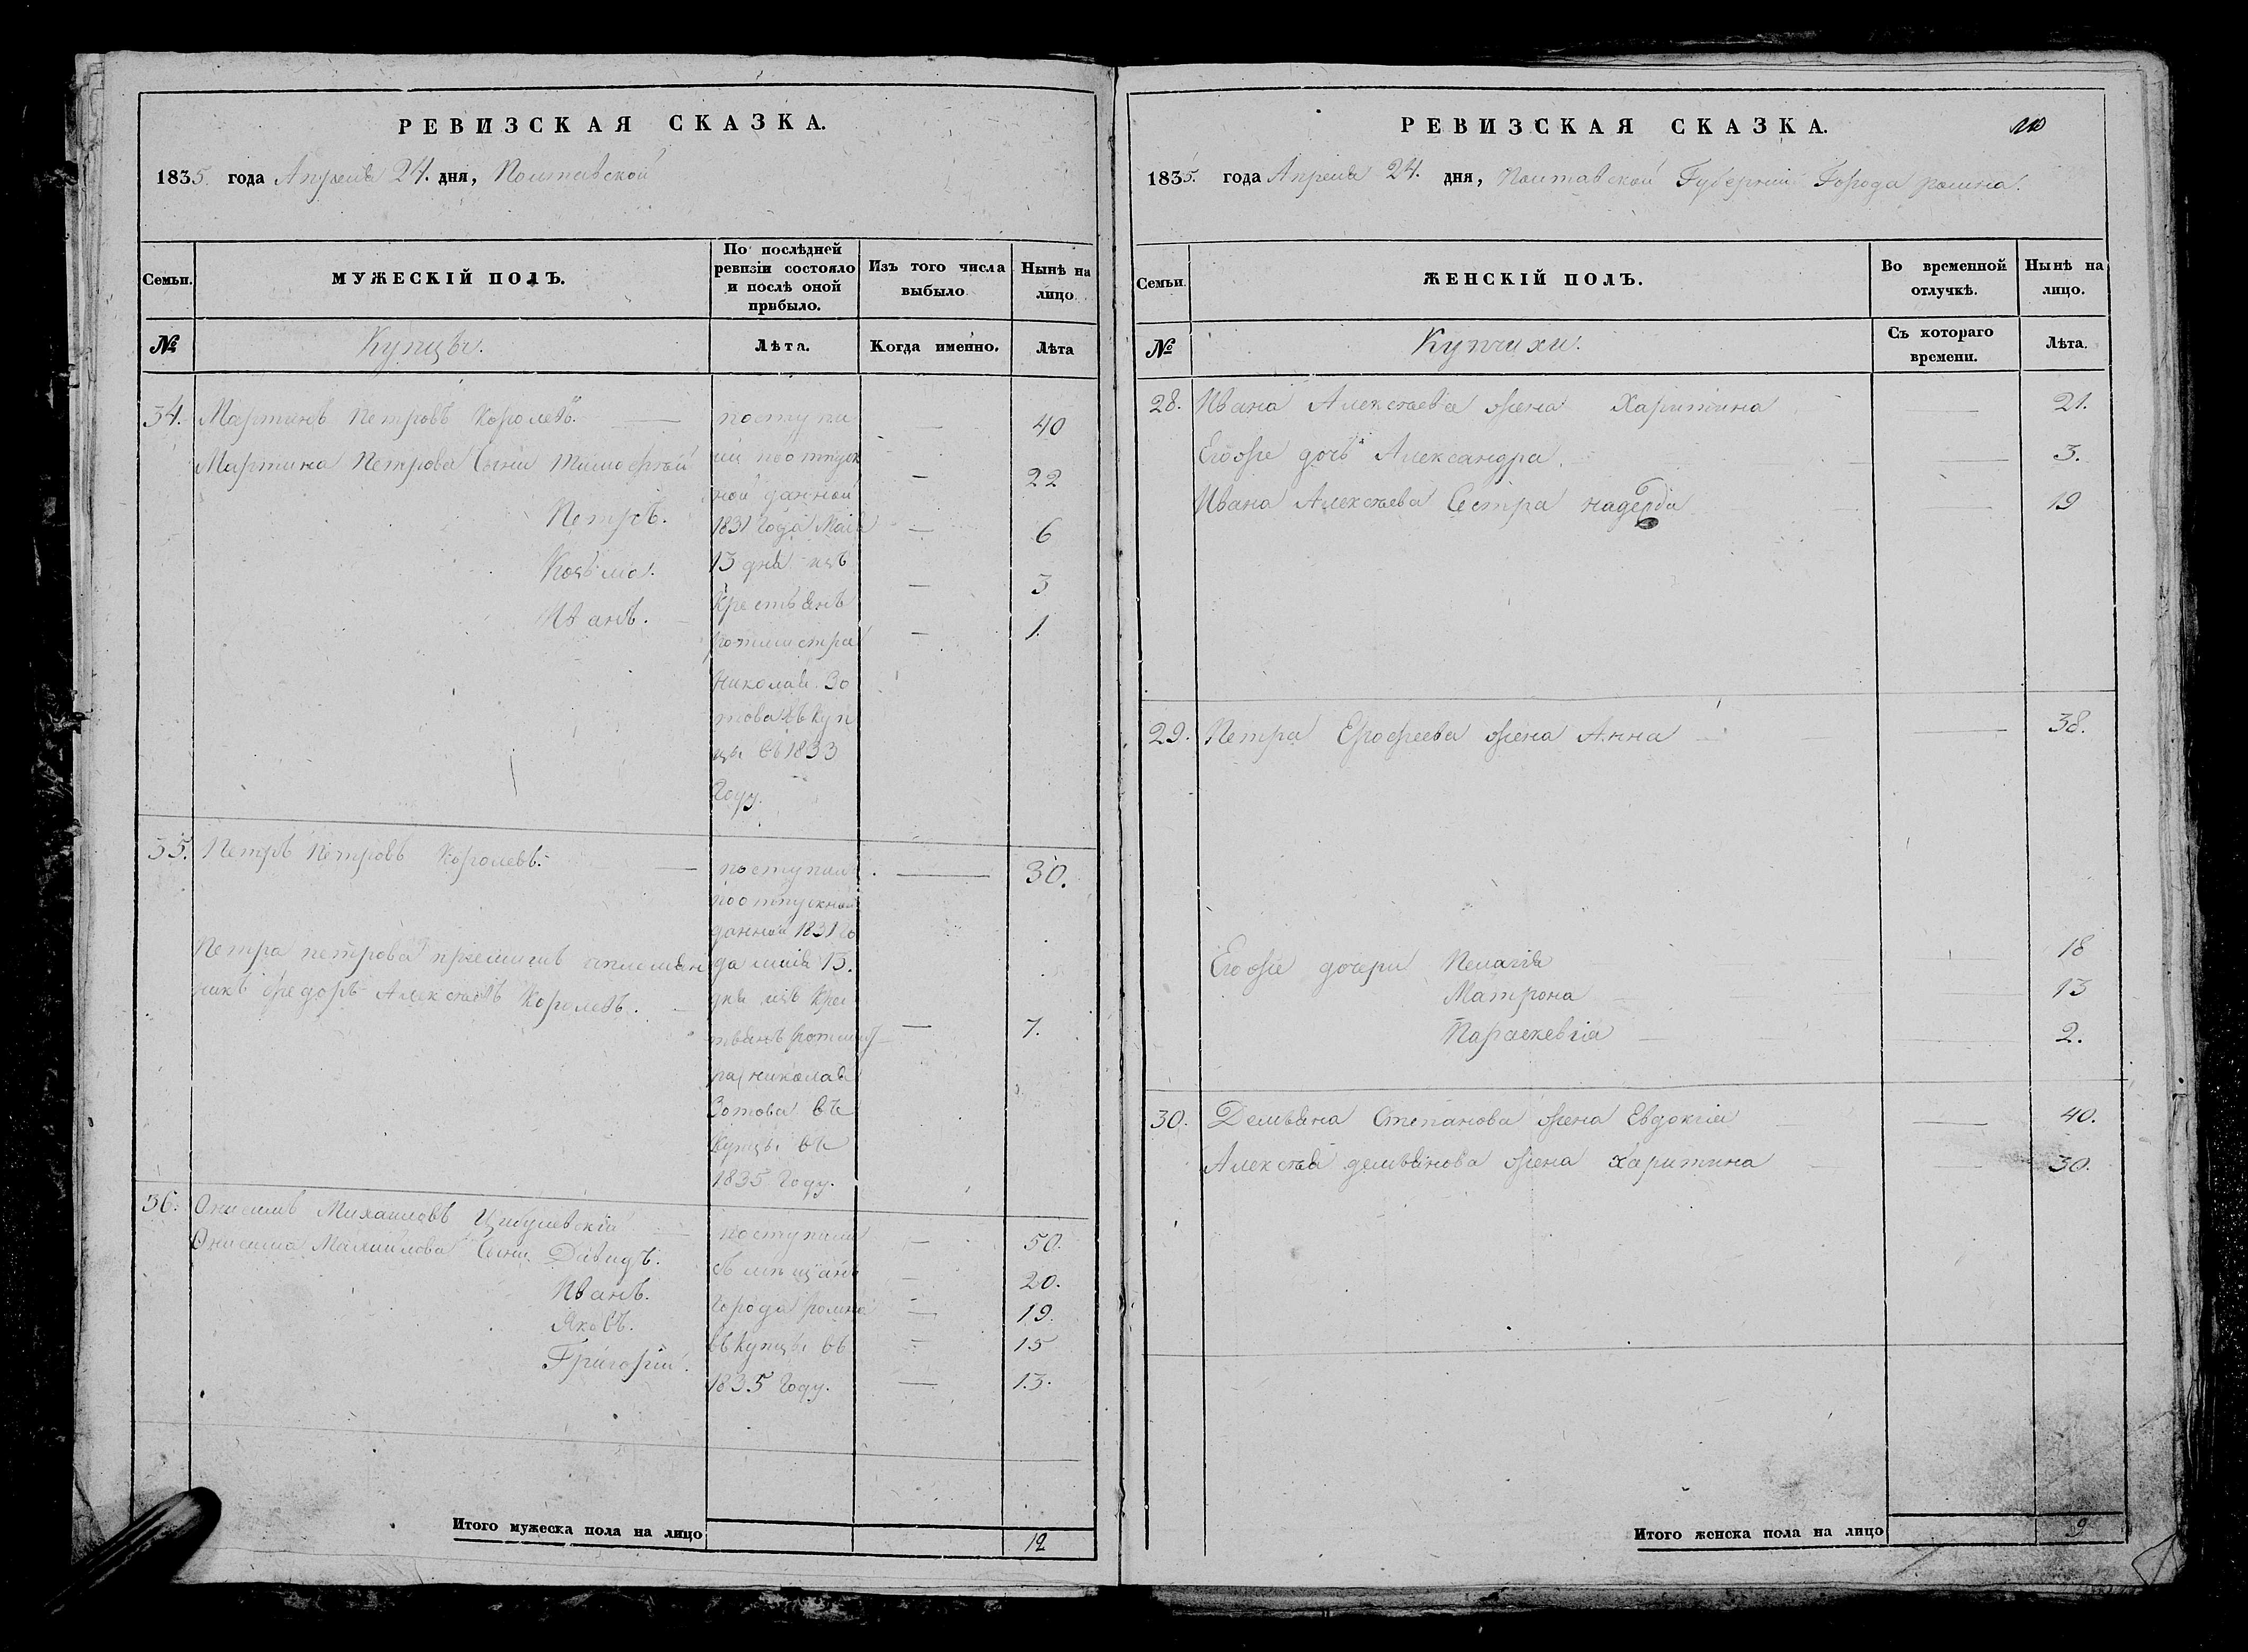 РЕВИЗСКАЯ СКАЗКА.
1835 года Апреля 24. дня, Полтавской
Семьи.
МУЖЕСКІЙ ПОЛЪ.
По послѣдней ревизіи состояло и послѣ оной прибыло.
Изъ того числа выбыло
Нынѣ на лицо
№
Купцы.
Лѣта.
Когда именно.
Лѣта
34. Мартинъ Петровъ Королевъ. — 40
Мартина Петрова сыни Тимофтей — 22
Петръ. — 6
Козьма. — 3
Иванъ. — 1.
поступи
ли поотпуск
ной данной
1831 года Маія
13 дня изъ
Крестьянъ
ротмистра
Николая Зо
това въ куп
цы въ 1833
Году.
35. Петръ Петровъ Королевъ. — 30.
Петра петрова приемишъ иплемян
никъ Федоръ Алексѣевъ Королевъ. — 7.
поступилъ
поотпускной
данной 1831 го
да маія 13.
дня изъ Крес
тьянъ ротмист
ра Николая
Зотова въ
Купцы въ
1835 Году.
36. Онисимъ Михаиловъ Цибулевскій — 50.
Онисима Михаилова сыни Давидъ. — 20.
Иванъ. — 19.
Яковъ. — 15
Григорій. — 13.
поступили
съ мещанъ
города ромна
въ Купцы въ
1835 Году.
Итого мужеска пола на лицо 12
РЕВИЗСКАЯ СКАЗКА.
10
1835. года Апреля 24. дня, Полтавской Губерніи Города ромна.
Семьи
ЖЕНСКІЙ ПОЛЪ.
Во временной отлучкѣ.
Нынѣ на лицо.
№
Купчихи.
Съ котораго времени.
Лѣта.
28. Ивана Алексѣева жена Харитина — 21.
Егоже дочь Александра. — 3.
Ивана Алексѣева Сестра — 19
29. Петра Ерофеева жена Анна — 38.
Егоже дочери Пелагія — 18
Матрона — 13
Параскевія — 2.
30. Демьяна Степанова жена Евдокія — 40.
Алексѣя демьянова жена Харитина — 30.
Итого женска пола на лицо 9